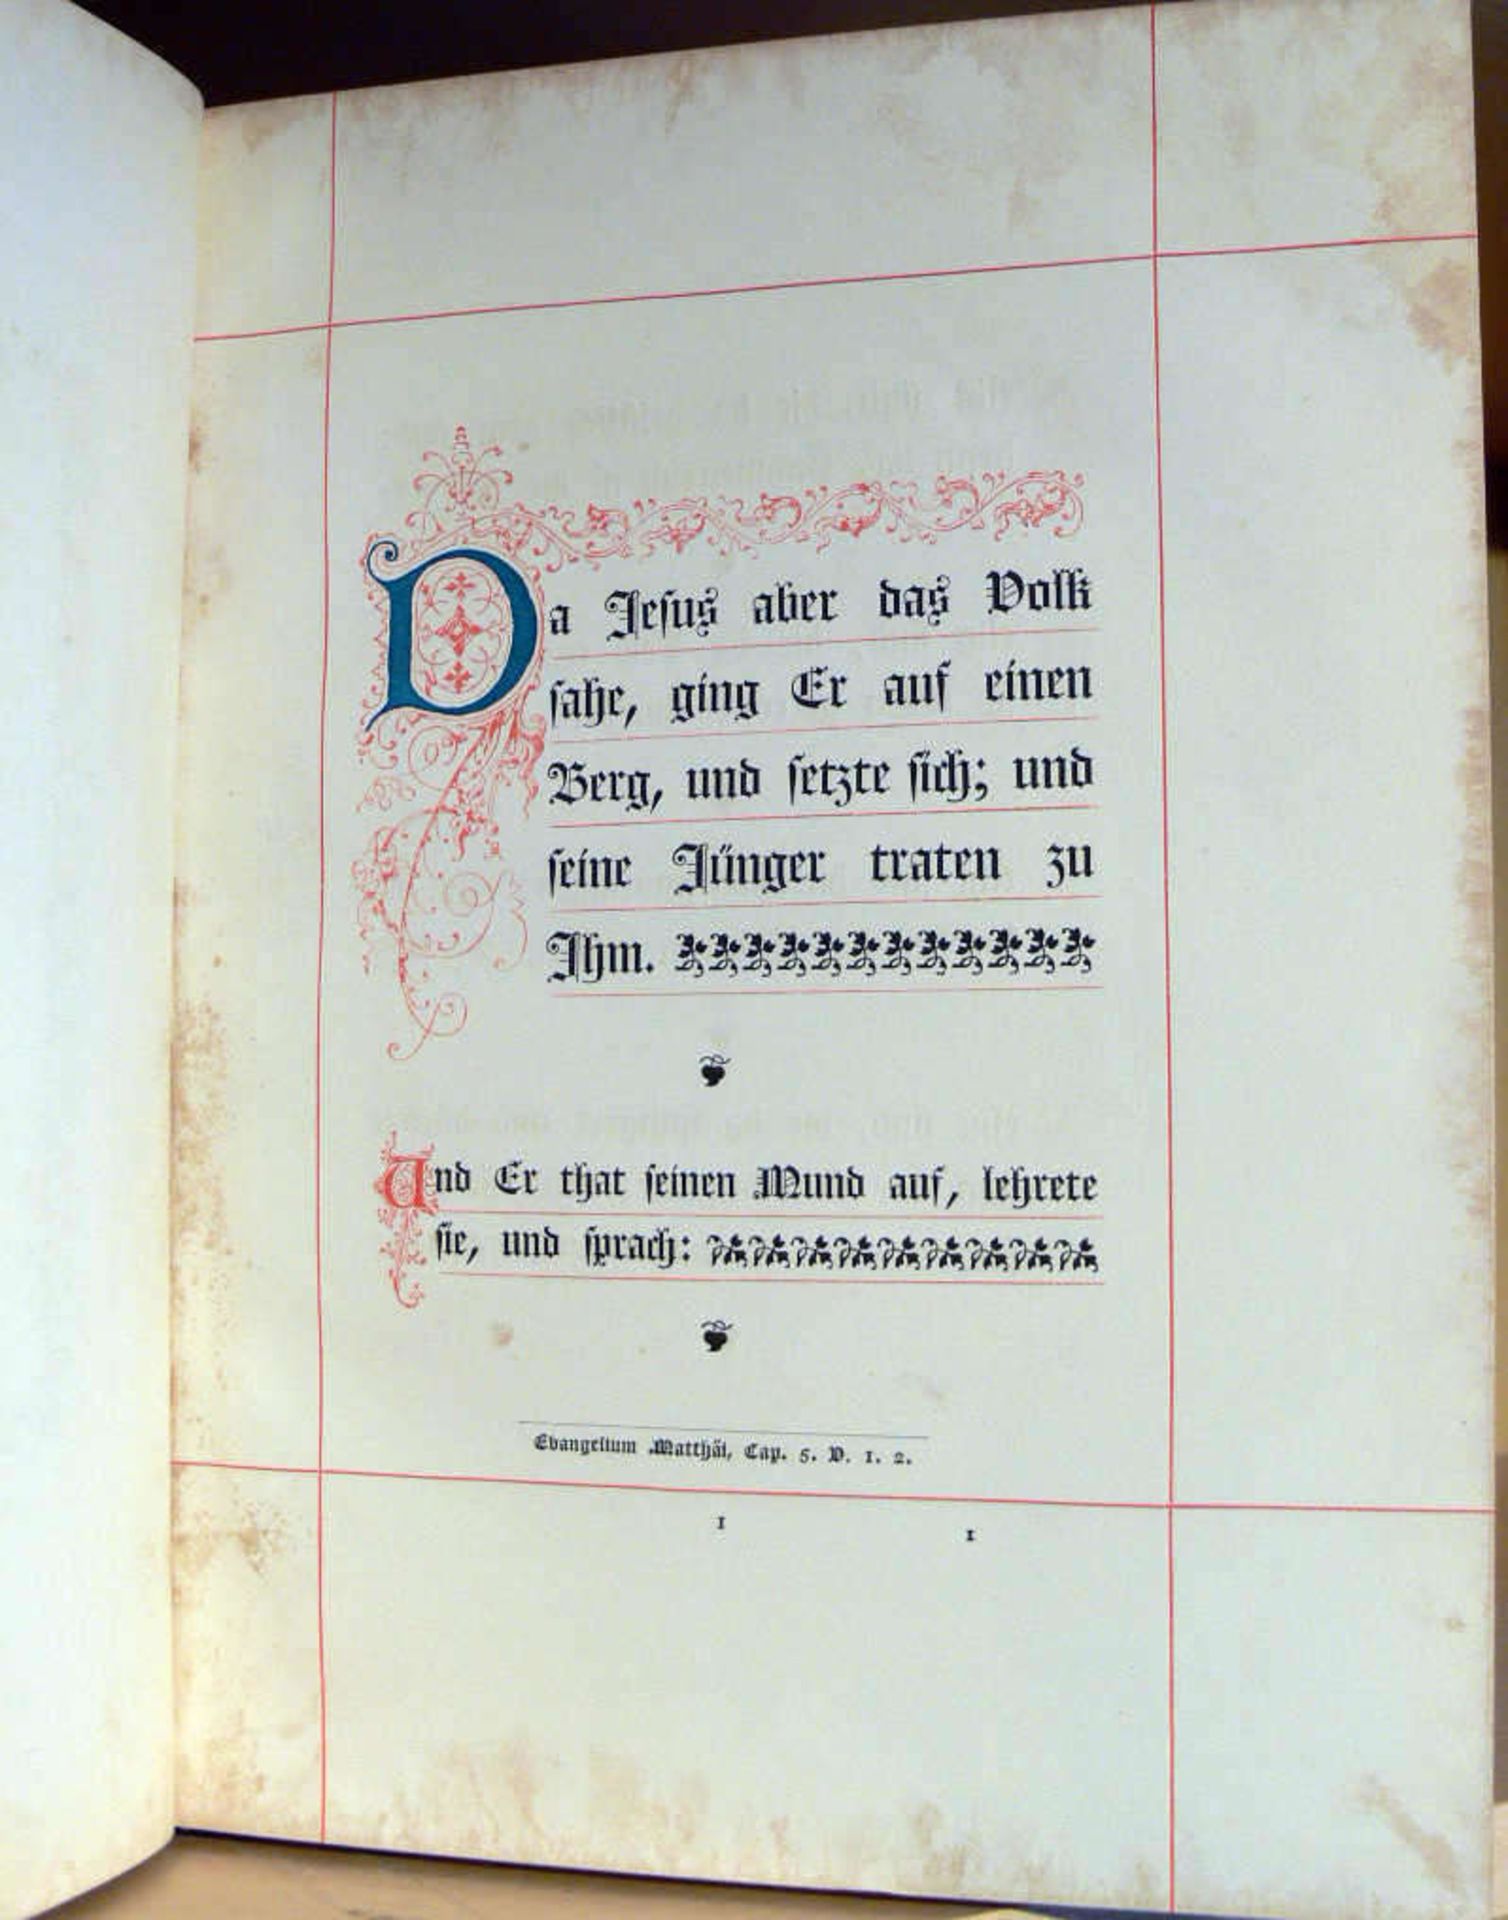 Da Jesus aber das Volk
sahe, ging Er auf einen
Berg, und setzte sich; und
seine Jünger traten zu
Ihm.
Und Er that seinen Mund auf, lehrete
sie, und sprach:
Evangelium Matthäi, Cap. 5. V. 1. 2.
1 1